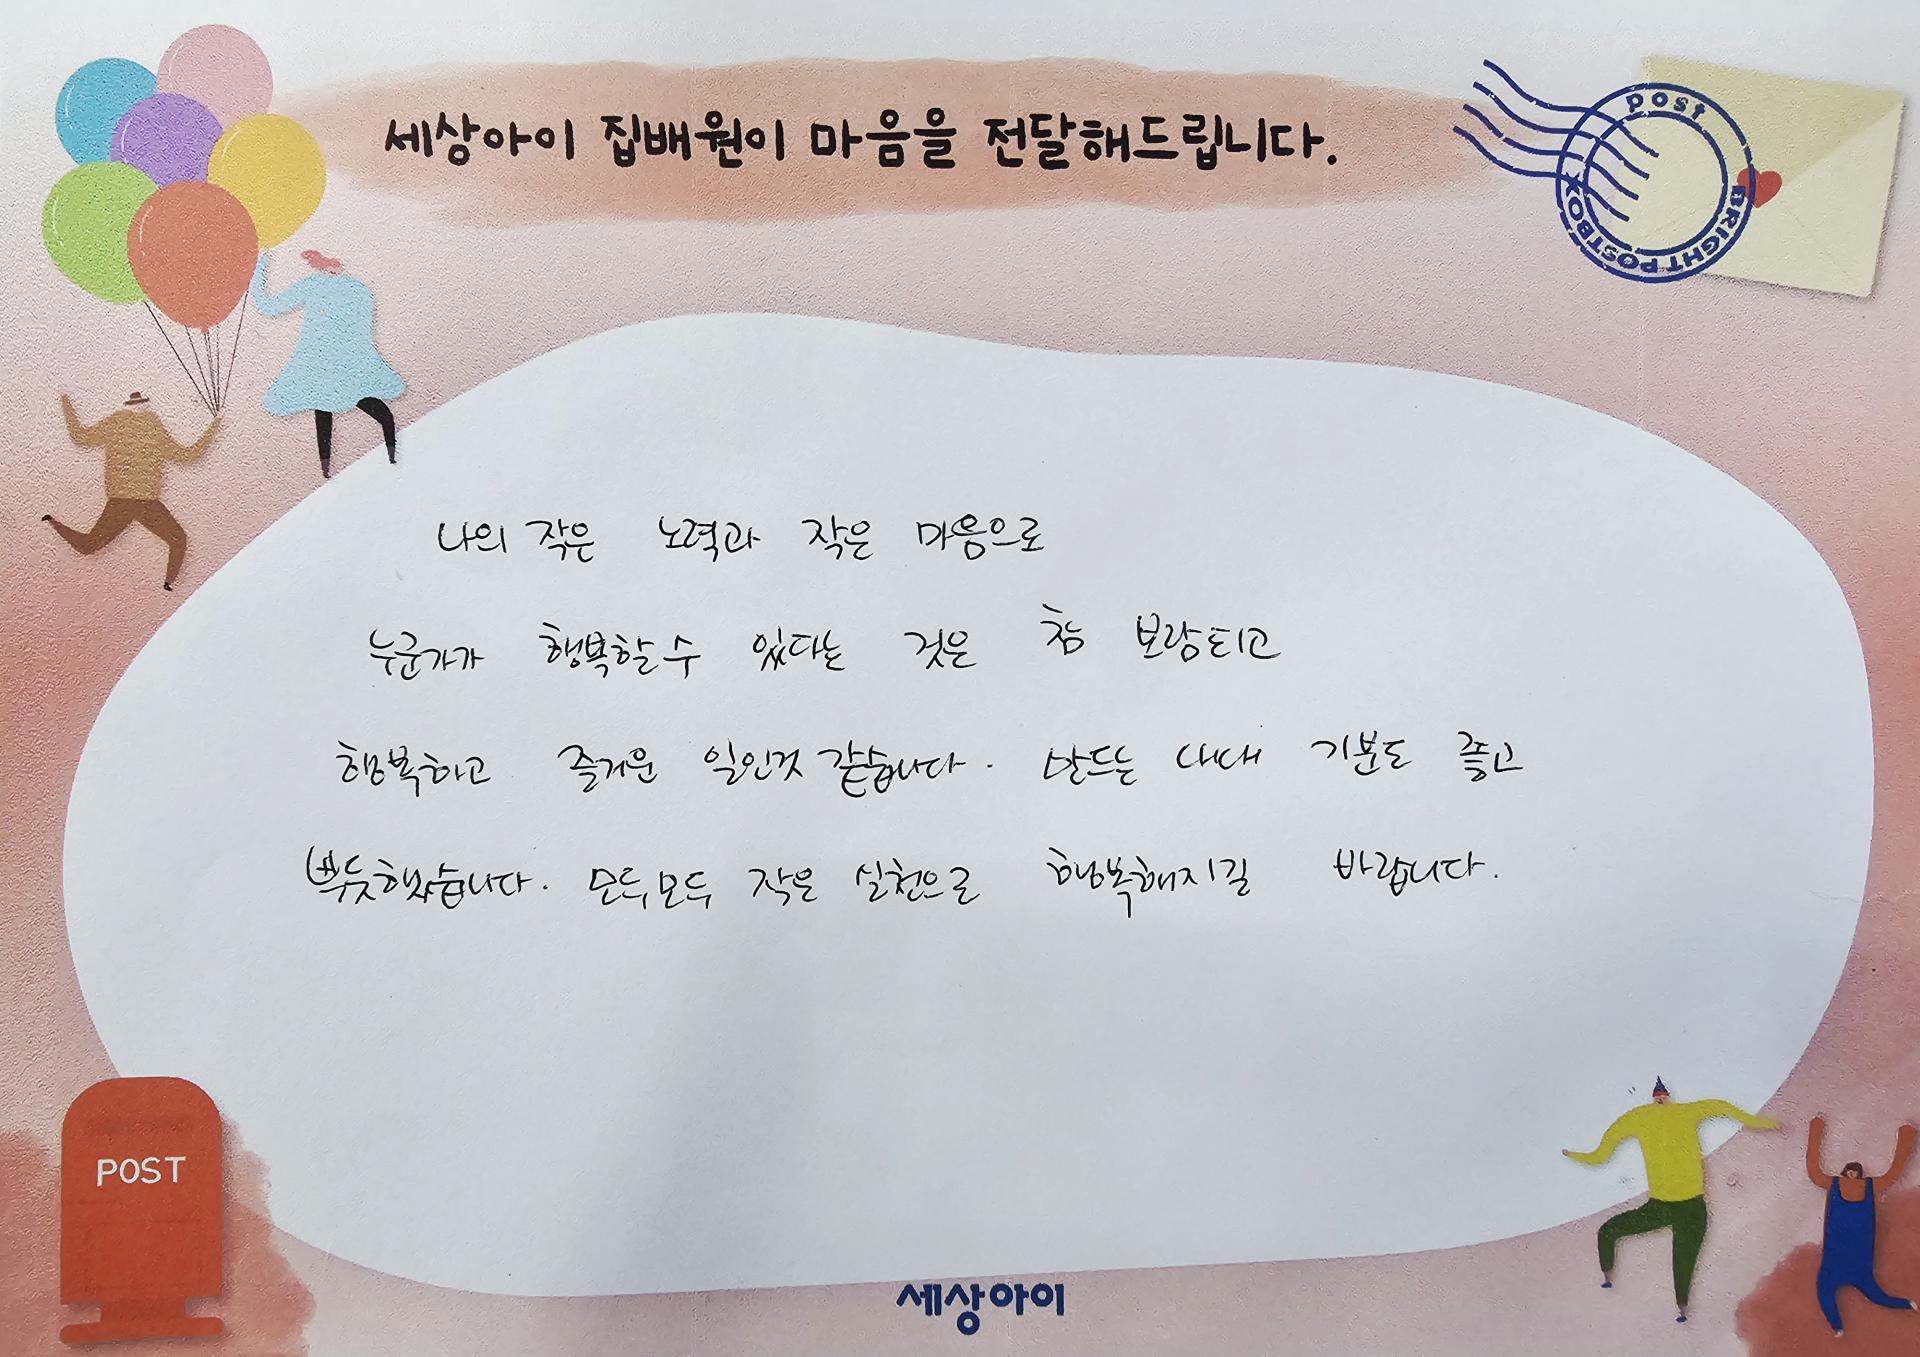 세상아이 집배원이 마음을 전달해드립니다.
post
BRIGHT POSTBOX
나의 작은 노력과 작은 마음으로
누군가가 행복할 수 있다는 것은 참 보람되고
행복하고 즐거운 일인것 같습니다. 만드는 내내 기분도 좋고
뿌듯했습니다. 모두모두 작은 실천으로 행복해지길 바랍니다.
POST
세상아이